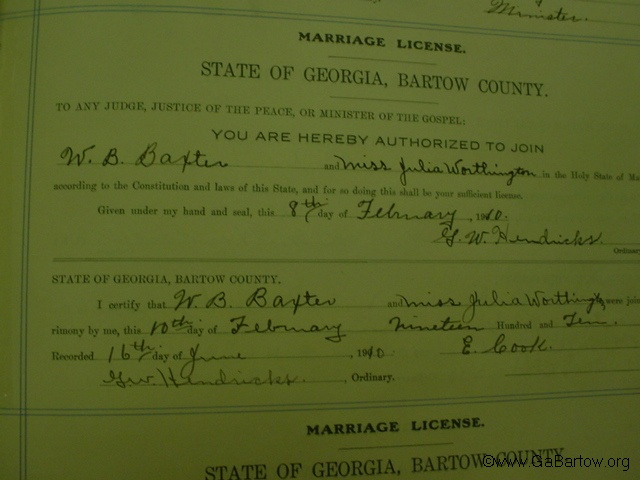 Minister.
MARRIAGE LICENSE.
STATE OF GEORGIA, BARTOW COUNTY.
TO ANY JUDGE, JUSTICE OF THE PEACE, OR MINISTER OF THE GOSPEL:
YOU ARE HEREBY AUTHORIZED TO JOIN
W. B. Baxter and Miss Julia Worthington in the Holy State of Ma
according to the Constitution and laws of this State, and for so doing this shall be your sufficient license.
Given under my hand and seal, this 8th day of February, 1910.
G. W. Hendricks.
Ordinary
STATE OF GEORGIA, BARTOW COUNTY.
I certify that W. B. Baxter and Miss Julia Worthington were join
rimony by me, this 10th day of February Nineteen Hundred and Ten.
Recorded 16th day of June, 1910 E. Cook.
G.W. Hendricks. Ordinary.
MARRIAGE LICENSE.
STATE OF GEORGIA, BARTOW COUNTY
©www.GaBartow.org